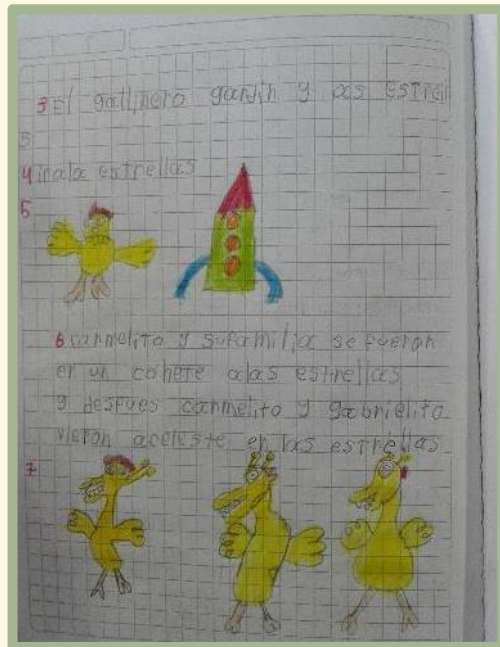 3 El gallinero gardin y las estrell
4 ir a la estrellas
5
6 carmelito y sufamilia se fueron
en un cohete a las estrellas
y despues carmelito y gabrielito
vieron aceleste en las estrellas
7